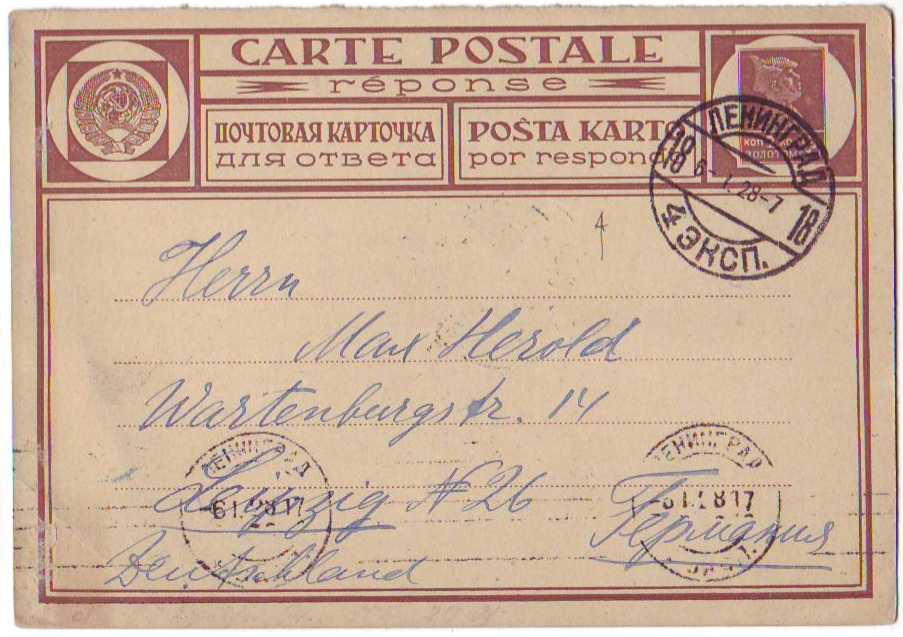 CARTE POSTALE
réponse
ПОЧТОВАЯ КАРТОЧКА
для ответа
POŜTA KARTO
por respondo
ЗОЛОТОМ
ЛЕНИНГРАД
6-1.28-7
18
18
4 ЭКСП.
4
Herrn
Max Herold
Wartenburgstr. 14
Leipzig N 26
Германия
Deutschland
ЛЕНИНГРАД
61.28 17
ЛЕНИНГРАД